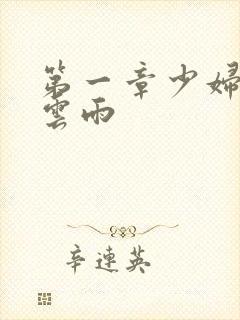 第一章少婦
雲雨
辛連英